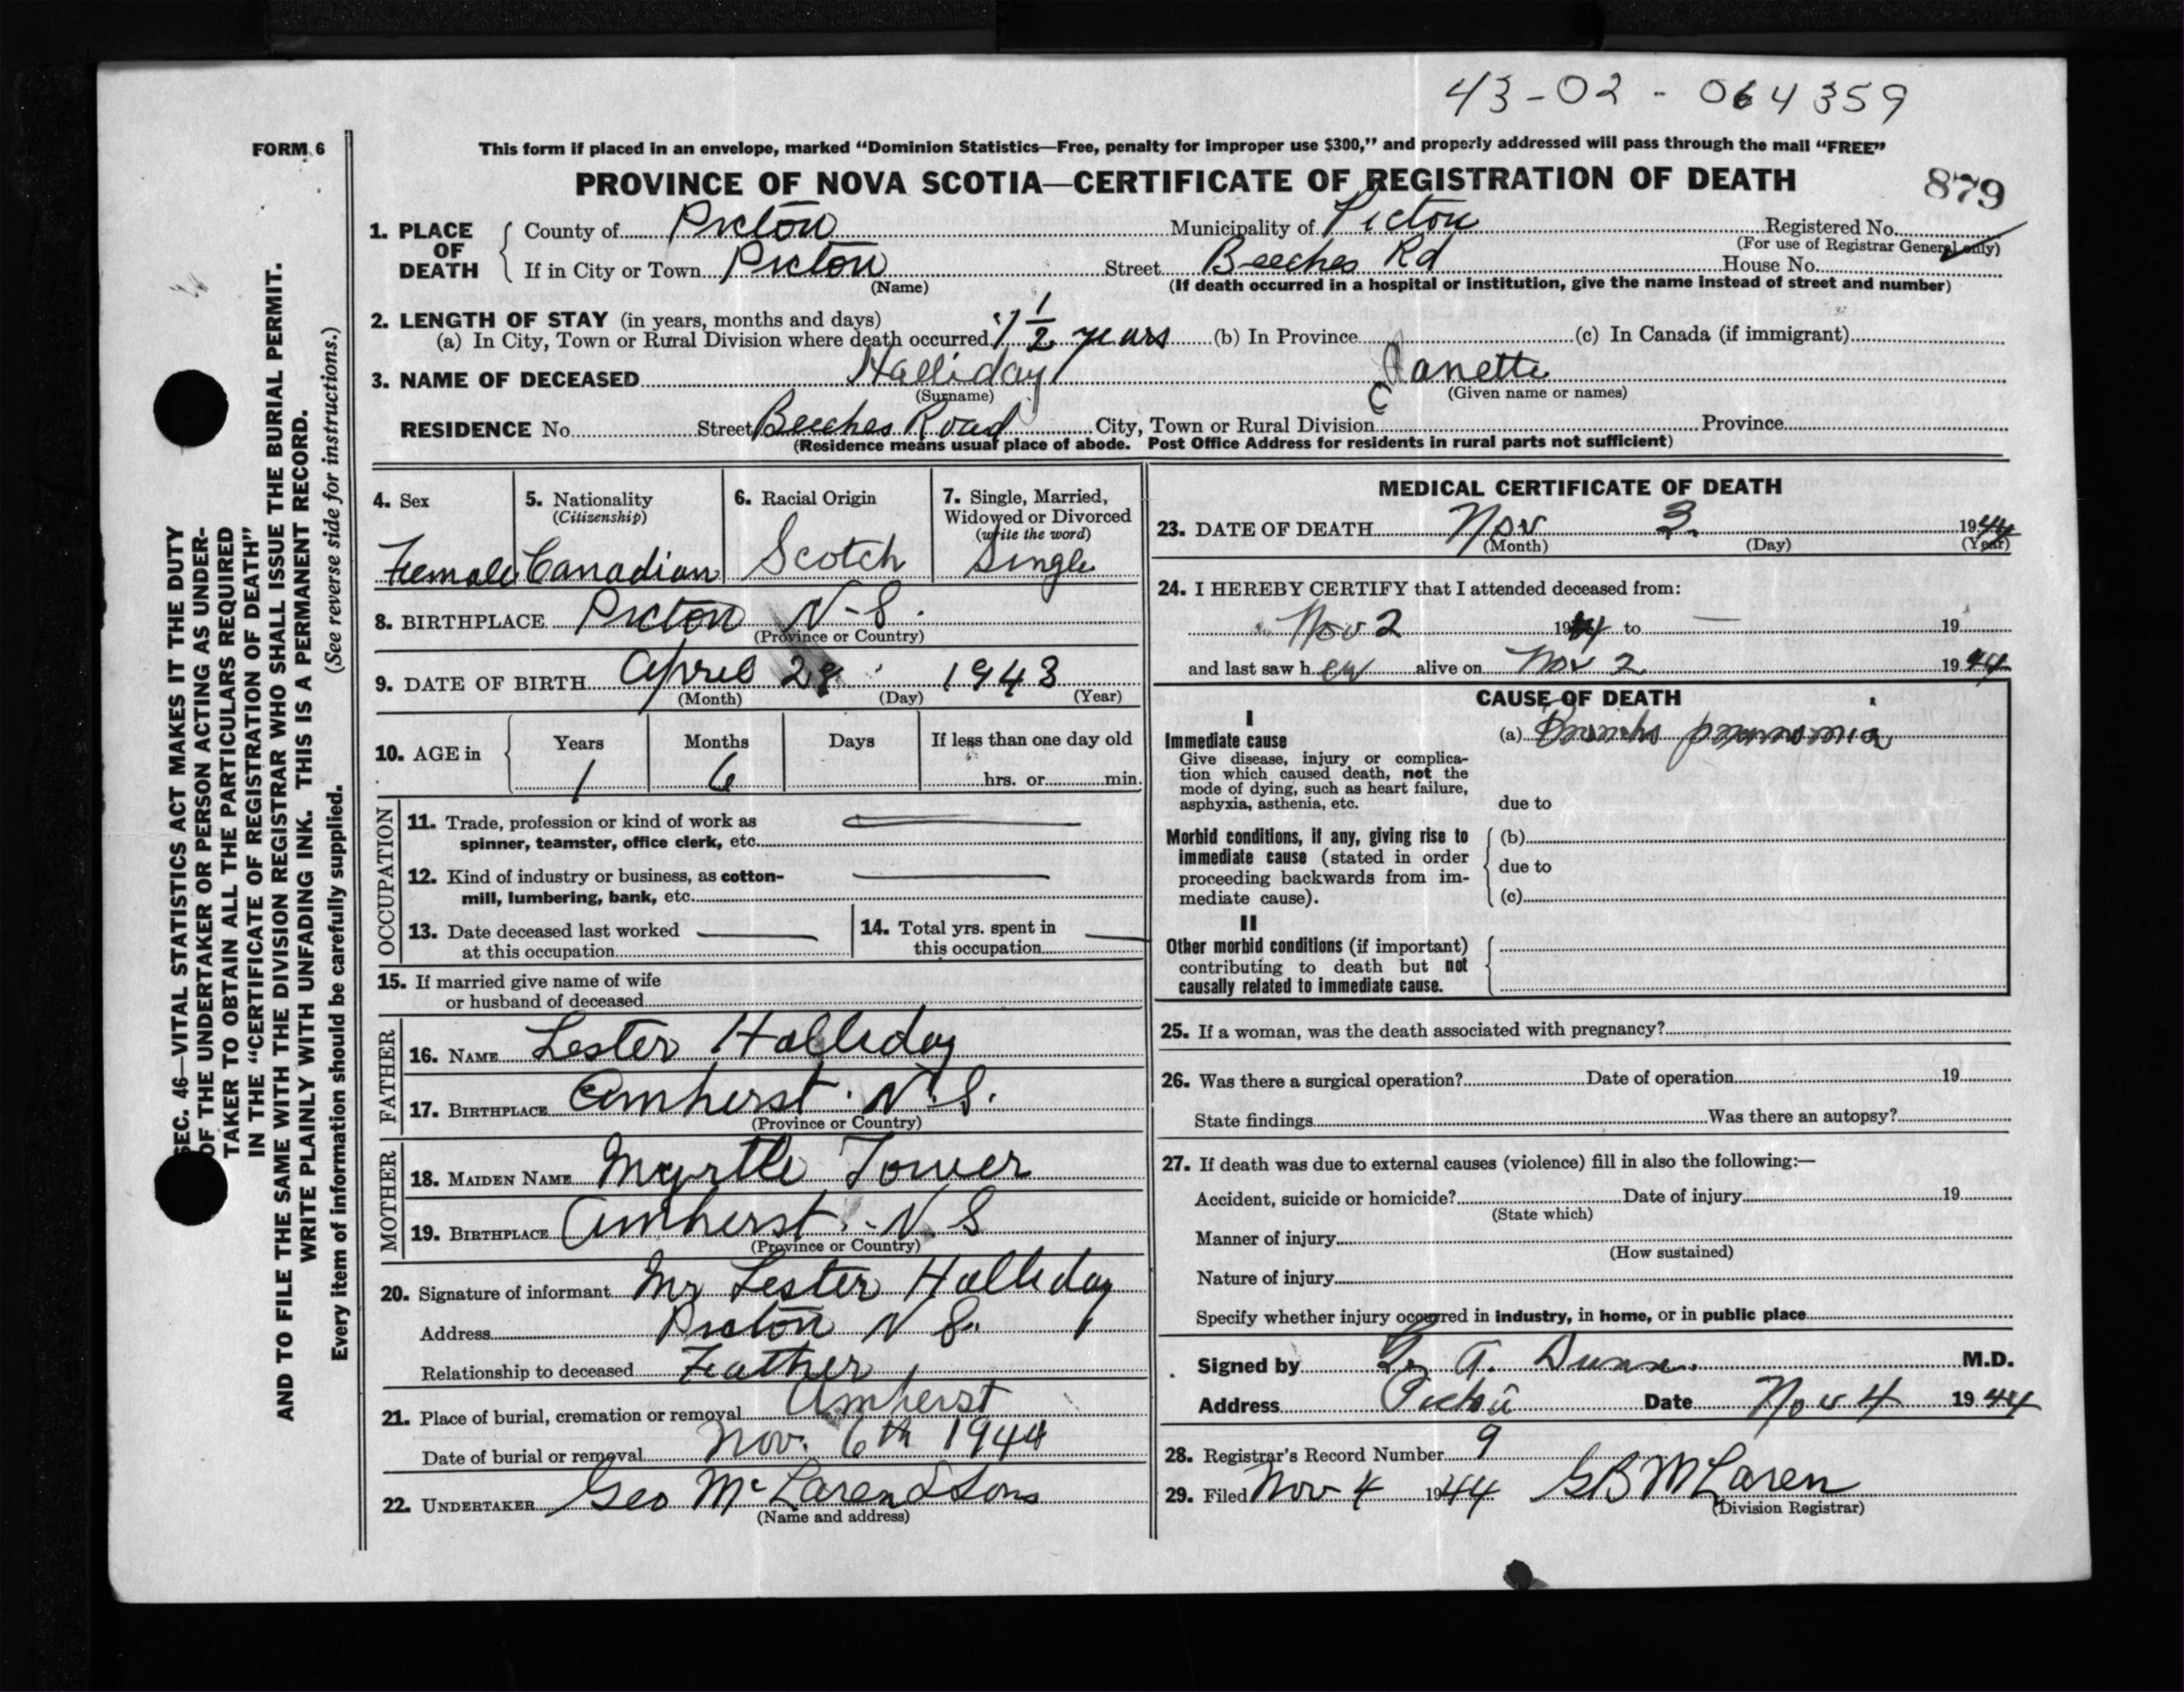 43-02-064359
FORM 6
This form if placed in an envelope, marked "Dominion Statistics—Free, penalty for improper use $300," and properly addressed will pass through the mail "FREE"
PROVINCE OF NOVA SCOTIA—CERTIFICATE OF REGISTRATION OF DEATH
879
1. PLACE OF DEATH
County of Pictou Municipality of Pictou Registered No.
(For use of Registrar General only)
If in City or Town Pictou Street Beeches Rd House No.
(Name) (If death occurred in a hospital or institution, give the name instead of street and number)
2. LENGTH OF STAY (in years, months and days)
(a) In City, Town or Rural Division where death occurred 1 1/2 years (b) In Province (c) In Canada (if immigrant)
3. NAME OF DECEASED Halliday Janette
(Surname) (Given name or names)
RESIDENCE No. Street Beeches Road City, Town or Rural Division Province
(Residence means usual place of abode. Post Office Address for residents in rural parts not sufficient)
4. Sex
Female
5. Nationality
(Citizenship)
Canadian
6. Racial Origin
Scotch
7. Single, Married,
Widowed or Divorced
(write the word)
Single
8. BIRTHPLACE Pictou N-S.
(Province or Country)
9. DATE OF BIRTH April 28 1943
(Month) (Day) (Year)
10. AGE in
Years Months Days If less than one day old
1 6 hrs. or min.
OCCUPATION
11. Trade, profession or kind of work as
spinner, teamster, office clerk, etc.
12. Kind of industry or business, as cotton-
mill, lumbering, bank, etc.
13. Date deceased last worked
at this occupation
14. Total yrs. spent in
this occupation
15. If married give name of wife
or husband of deceased
FATHER
16. NAME Lester Halliday
17. BIRTHPLACE Amherst. N.S.
(Province or Country)
MOTHER
18. MAIDEN NAME Myrtle Tower
19. BIRTHPLACE Amherst.-N.S
(Province or Country)
20. Signature of informant Mr Lester Halliday
Address Pictou N S.
Relationship to deceased Father
21. Place of burial, cremation or removal Amherst
Date of burial or removal Nov. 6th 1944
22. UNDERTAKER Geo McLaren & Sons
(Name and address)
MEDICAL CERTIFICATE OF DEATH
23. DATE OF DEATH Nov 3. 1944
(Month) (Day) (Year)
24. I HEREBY CERTIFY that I attended deceased from:
Nov 2 1944 to — 19
and last saw h er alive on Nov 2 1944
CAUSE OF DEATH
I
Immediate cause
Give disease, injury or complica-
tion which caused death, not the
mode of dying, such as heart failure,
asphyxia, asthenia, etc.
(a) Broncho pneumonia
due to
Morbid conditions, if any, giving rise to
immediate cause (stated in order
proceeding backwards from im-
mediate cause).
(b)
due to
(c)
II
Other morbid conditions (if important)
contributing to death but not
causally related to immediate cause.
25. If a woman, was the death associated with pregnancy?
26. Was there a surgical operation? Date of operation 19
State findings Was there an autopsy?
27. If death was due to external causes (violence) fill in also the following:—
Accident, suicide or homicide? Date of injury 19
(State which)
Manner of injury
(How sustained)
Nature of injury
Specify whether injury occurred in industry, in home, or in public place
Signed by A. Dunn. M.D.
Address Pictou Date Nov 4 1944
28. Registrar's Record Number 9
29. Filed Nov 4 1944 GB McLaren
(Division Registrar)
SEC. 46—VITAL STATISTICS ACT MAKES IT THE DUTY
OF THE UNDERTAKER OR PERSON ACTING AS UNDER-
TAKER TO OBTAIN ALL THE PARTICULARS REQUIRED
IN THE "CERTIFICATE OF REGISTRATION OF DEATH"
AND TO FILE THE SAME WITH THE DIVISION REGISTRAR WHO SHALL ISSUE THE BURIAL PERMIT.
WRITE PLAINLY WITH UNFADING INK. THIS IS A PERMANENT RECORD.
Every item of information should be carefully supplied. (See reverse side for instructions.)